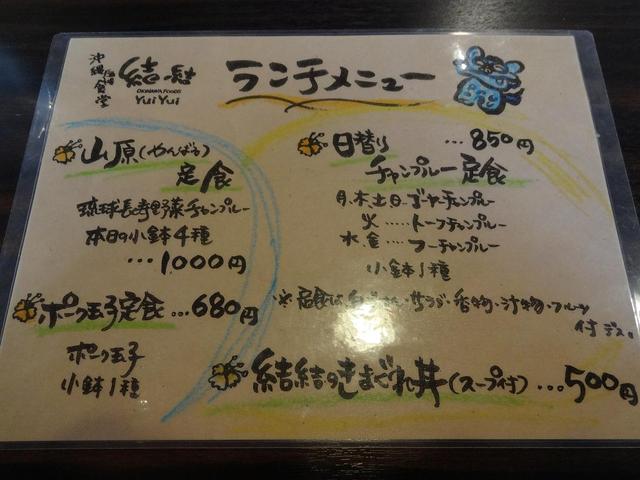 沖縄食堂
結結
OKINAWA FOODS
YuiYui
ランチメニュー
山原(やんばる)
定食
琉球長寿野菜チャンプルー
本日の小鉢4種
…1000円
ポーク玉子定食…680円
ポーク玉子
小鉢1種
日替り…850円
チャンプルー定食
月、木、土、日…ゴーヤーチャンプルー
火……トーフチャンプルー
水、金…フーチャンプルー
小鉢1種
※定食は・サラダ・香物・汁物・フルーツ
付デス。
結結のきまぐれ丼(スープ付)…500円